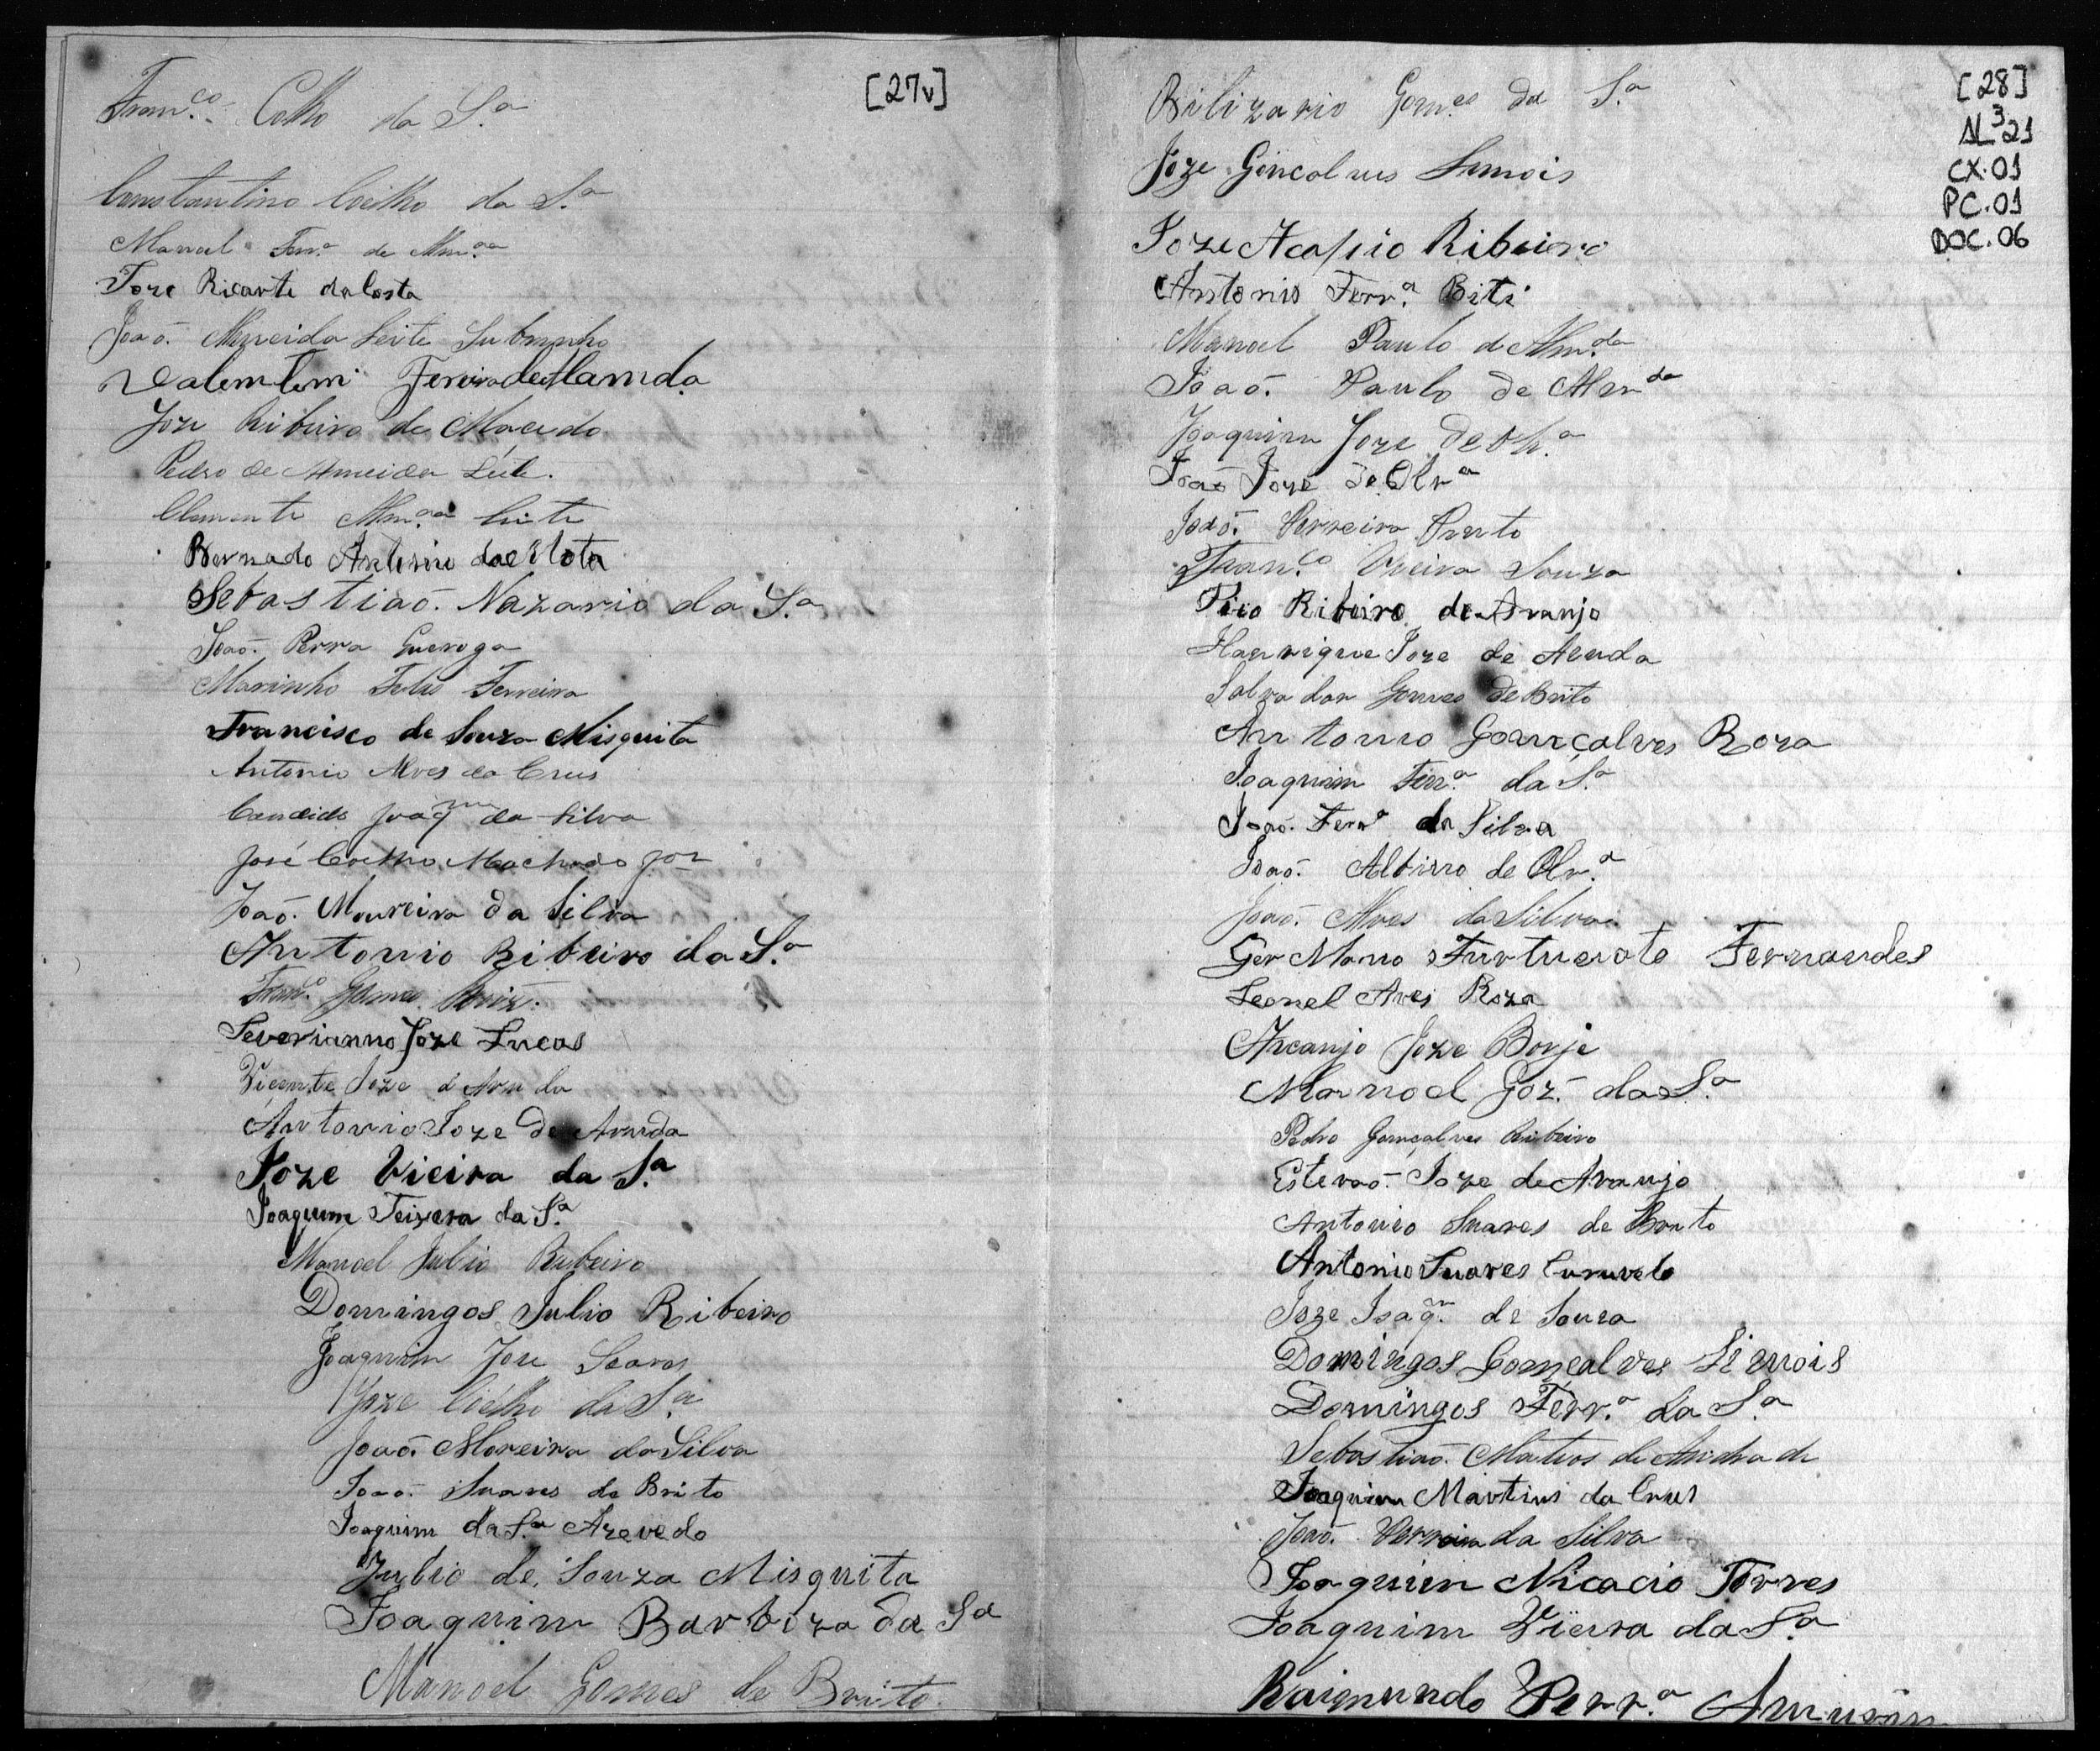 [27v]
Franco. Collo da Sa
Constantino Coelho da Sa
Manoel Ferra de Almda
Joze Ricarte da Costa
João Almeida Leite Subrinho
Valemtim Fereira de Alamda
Joze Ribeiro de Macedo
Pedro de Almeida Leite.
Clemente Almda Leite
Bernado Antonio da Mota
Sebastiaõ. Nazario da Sa
Joaõ. Perra Gueroga
Marinho Felis Ferreira
Francisco de Souza Misquita
Antonio Alves da Crus
Candido Joaqm da Silva
José Coelho Machado Jor
Joaõ. Moureira da Silva
Antonio Ribeiro da Sa
Franco Gomes
Severianno Joze Lucas
Vicente Joze d Aruda
Antonio Joze De Aruda
Joze Vieira da Sa
Joaquim Teixera da Sa
Manoel Julio Ribeiro
Domingos Julio Ribeiro
Joaquim Joze Soares
Joze Coelho da Sa
Joaõ. Moreira da Silva
Joaõ. Suares de Brito
Joaquim da Sa Azevedo
Julio de Souza Misquita
Joaquim Barboza da Sa
Manoel Gomes de Brito
[28]
AL321
CX.01
PC.01
DOC.06
Bilizario Gomes da Sa
Joze Goncalves Simois
Joze Acassio Ribeiro
Antonio Ferra Biti
Manoel Paulo d Almda
Joaõ. Paulo de Almda
Joaquim Joze de Ola
Joaõ Joze de Olra
Joaõ. Perreira Pinto
Franco Vieira Souza
Pico Ribeiro de Araujo
Haenrique Joze de Aruda
Salvador Gomes de Brito
Antonio Gomçalves Roza
Joaquim Ferra da Sa
Joaõ. Ferra da Silva
Joaõ. Albino de Olra
Joaõ. Alves da Silva
GerMano Furtunato Fernandes
Leonel Aves Roza
Arcanjo Joze Borje
Manoel Goz. da Sa
Pedro Gomçalves Ribeiro
Estevaõ. Joze de Araujo
Antonio Suares de Brito
Antonio Suares Curuvelo
Joze Joaqm. de Souza
Domingos Gomçalves Simois
Domingos Ferra da Sa
Sebastiaõ. Mateos de Andrade
Joaquim Martins da Crus
Joaõ. Perreira da Silva
Joaquim Nicacio Torres
Joaquim Vieira da Sa
Raimundo Perra